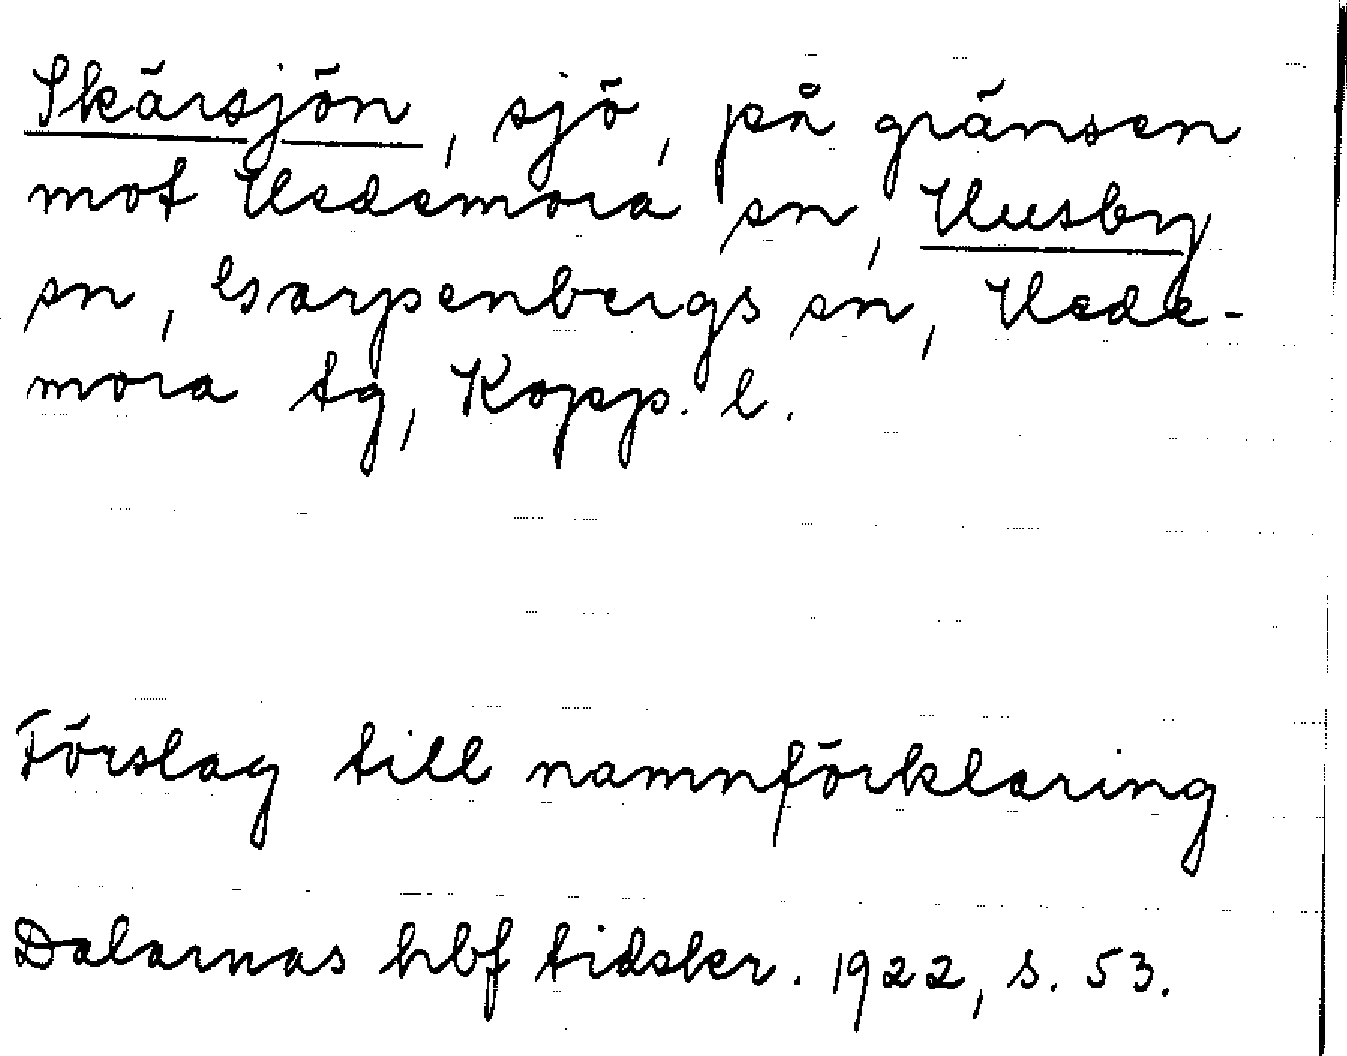 Skärsjön, sjö, på gränsen
mot Hedemora sn, Husby
sn, Garpenbergs sn, Hede-
mora tg, Kopp. l.
Förslag till namnförklaring
Dalarnas hbf tidskr. 1922, s. 53.